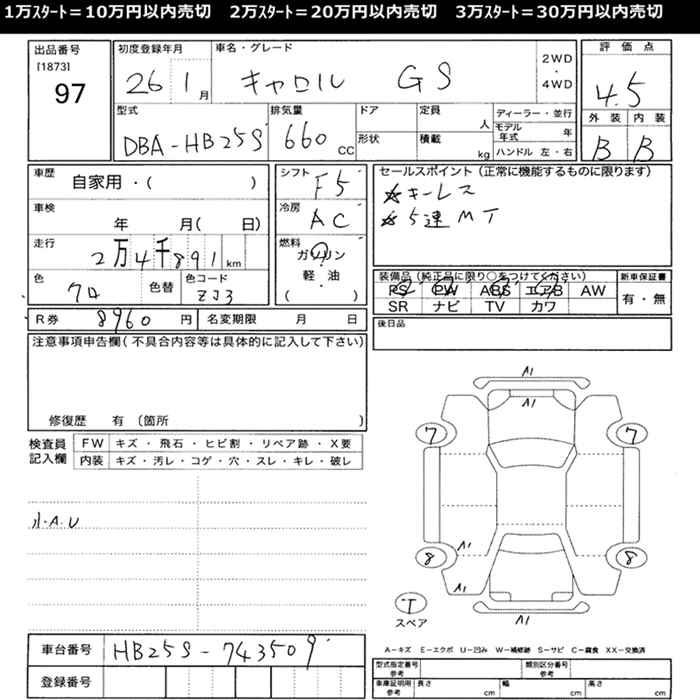 1万ｽﾀｰﾄ＝10万円以内売切　2万ｽﾀｰﾄ＝20万円以内売切　3万ｽﾀｰﾄ＝30万円以内売切
出品番号
[1873]
97
初度登録年月
26 1月
車名・グレード
キャロル GS
2WD・4WD
評価点
4.5
型式
DBA-HB25S
排気量
660 CC
ドア
形状
定員 人
積載 kg
ディーラー・並行
モデル年式 年
ハンドル 左・右
外装 内装
B B
車歴
自家用・( )
車検
年 月( 日)
走行
2万4千891km
色
クロ
色替
色コード
ZJ3
シフト F5
冷房 AC
燃料
ガソリン
軽・油
( )
セールスポイント（正常に機能するものに限ります）
☆キーレス
☆5速MT
装備品（純正品に限り○をつけてください）
PS PW ABS エアB AW
SR ナビ TV カワ
新車保証書
有・無
R券 8960円
名変期限 月 日
後日品
注意事項申告欄(不具合内容等は具体的に記入して下さい)
修復歴 有〔箇所 〕
検査員記入欄
FW キズ・飛石・ヒビ割・リペア跡・X要
内装 キズ・汚レ・コゲ・穴・スレ・キレ・破レ
小・A.U
A1
A1
7 7
8 A1 8
A1
T
スペア
A1
A－キズ E－エクボ U－凹み W－補修跡 S－サビ C－腐食 XX－交換済
車台番号 HB25S-743509
登録番号
型式指定番号 参考
類別区分番号 参考
車庫証明用 参考
長さ cm 幅 cm 高さ cm